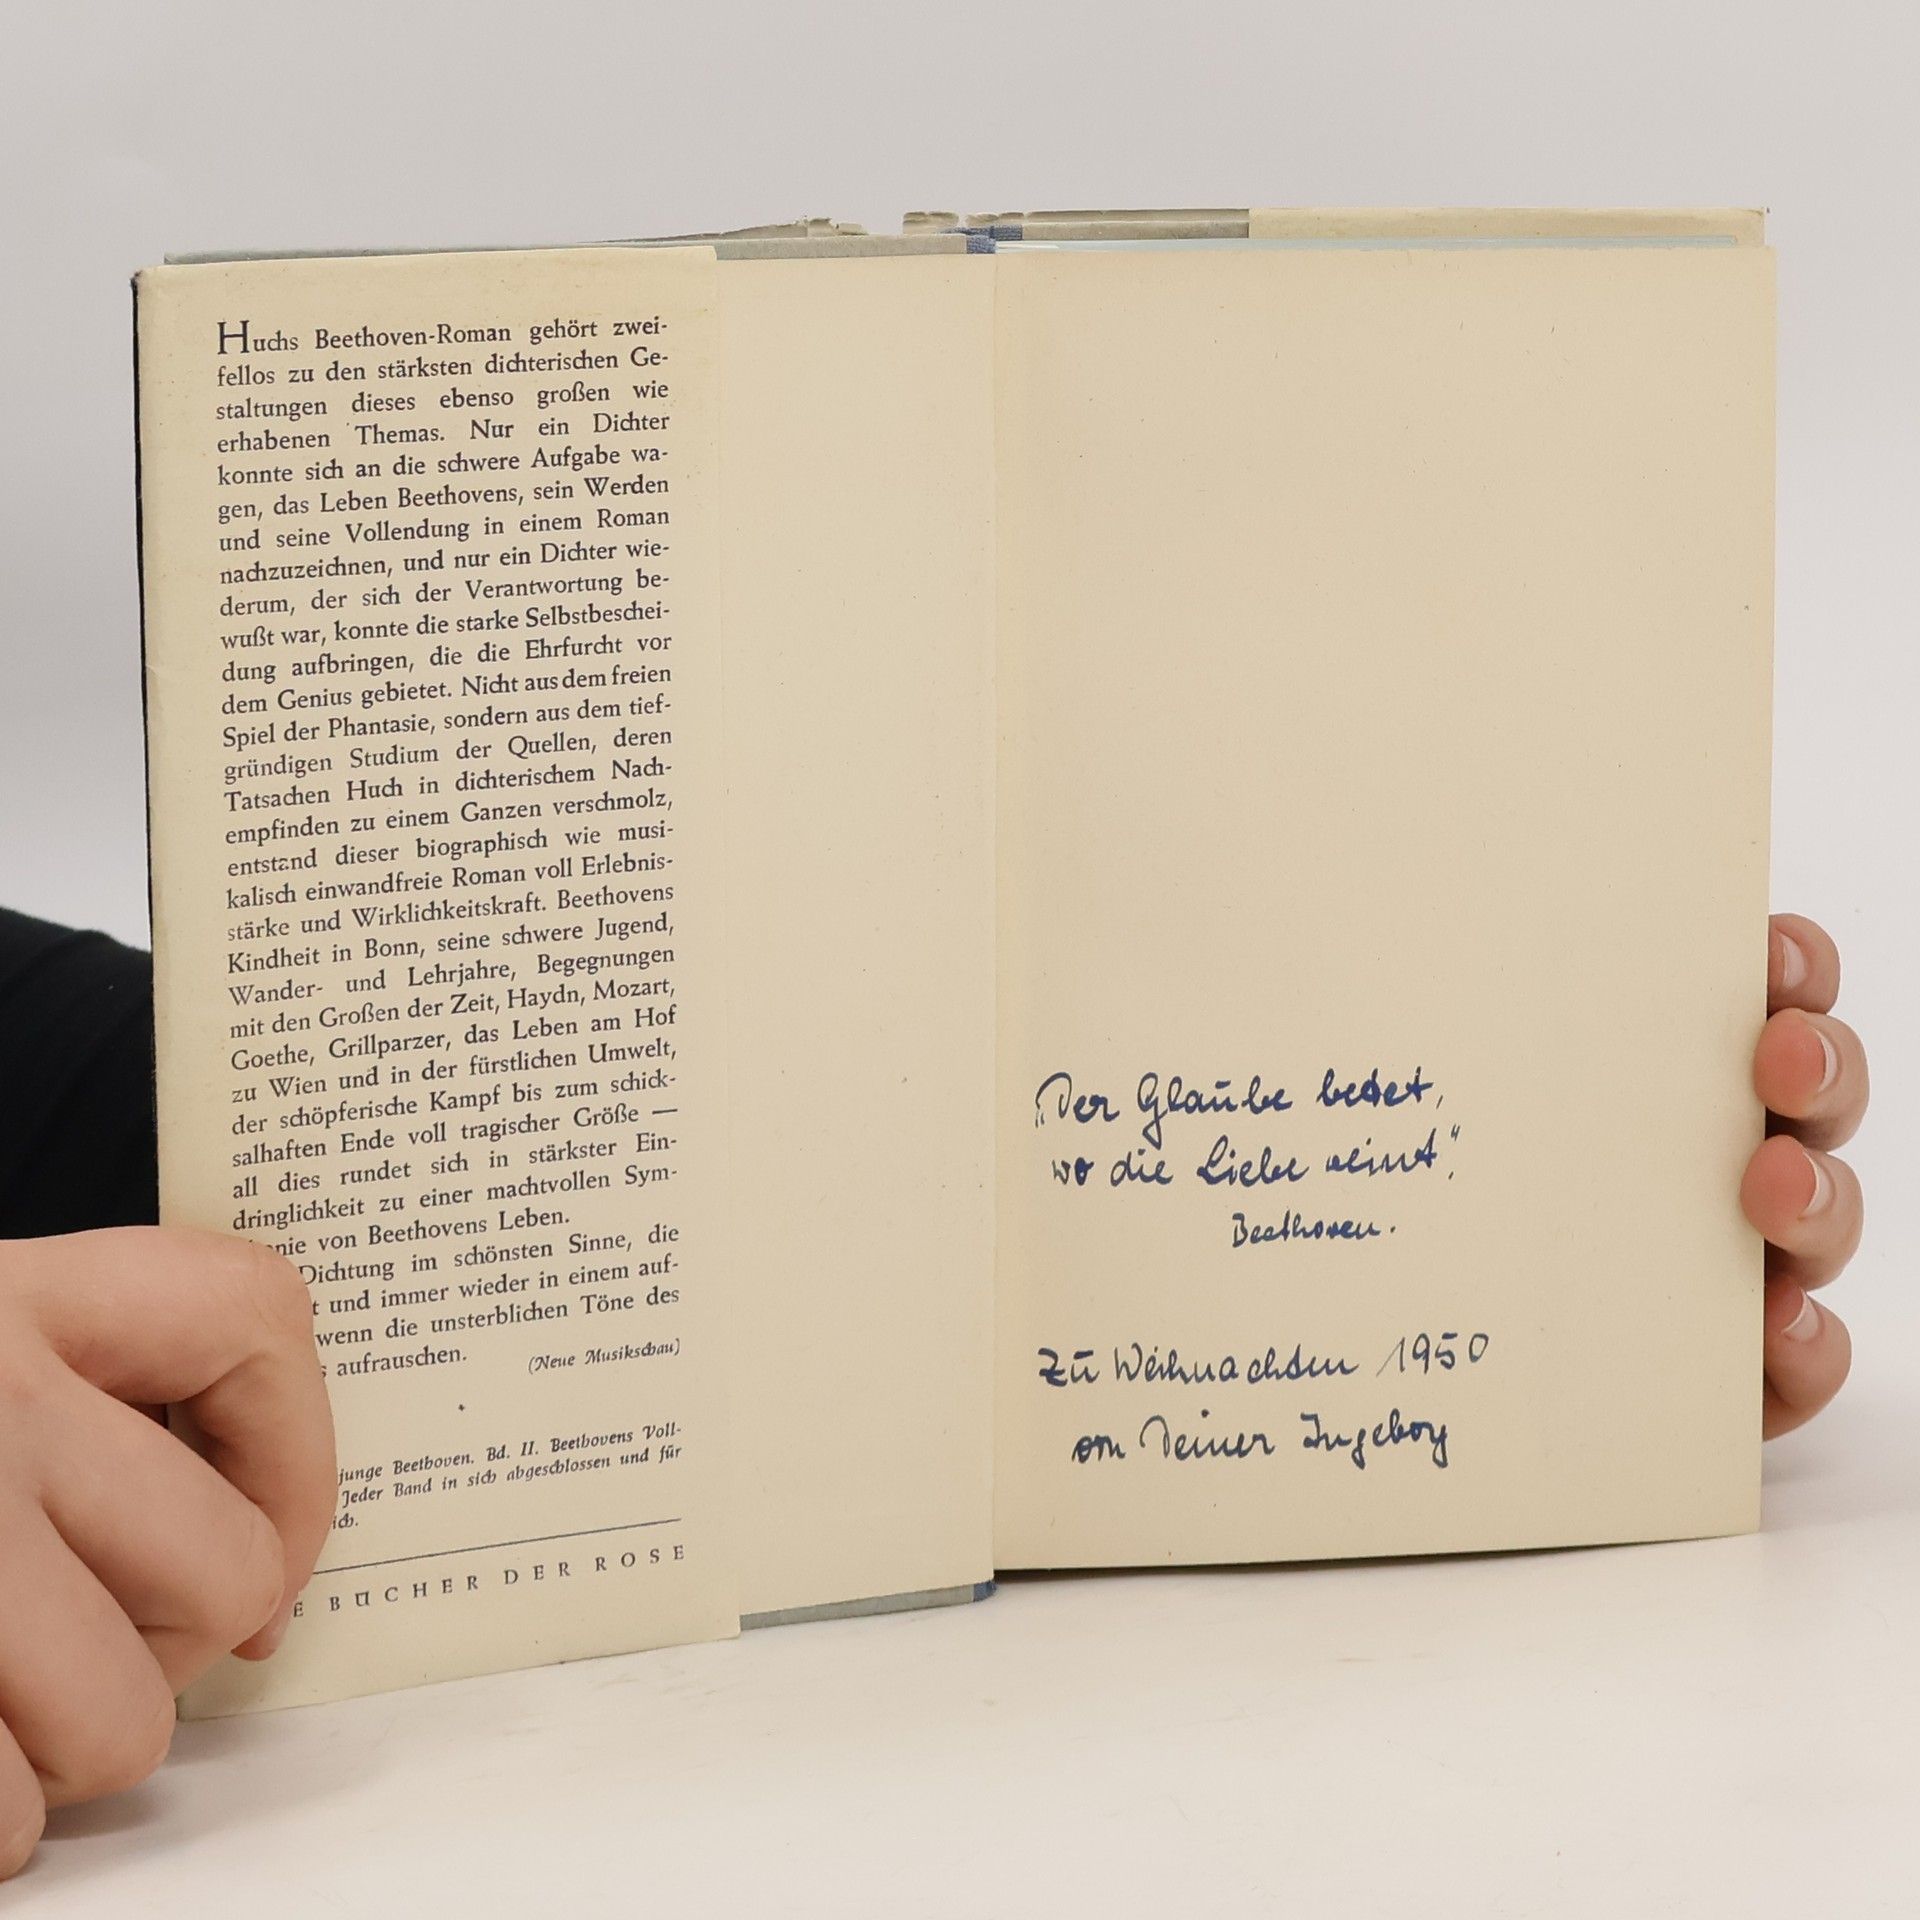 Huchs Beethoven-Roman gehört zwei-
fellos zu den stärksten dichterischen Ge-
staltungen dieses ebenso großen wie
erhabenen Themas. Nur ein Dichter
konnte sich an die schwere Aufgabe wa-
gen, das Leben Beethovens, sein Werden
und seine Vollendung in einem Roman
nachzuzeichnen, und nur ein Dichter wie-
derum, der sich der Verantwortung be-
wußt war, konnte die starke Selbstbeschei-
dung aufbringen, die die Ehrfurcht vor
dem Genius gebietet. Nicht aus dem freien
Spiel der Phantasie, sondern aus dem tief-
gründigen Studium der Quellen, deren
Tatsachen Huch in dichterischem Nach-
empfinden zu einem Ganzen verschmolz,
entstand dieser biographisch wie musi-
kalisch einwandfreie Roman voll Erlebnis-
stärke und Wirklichkeitskraft. Beethovens
Kindheit in Bonn, seine schwere Jugend,
Wander- und Lehrjahre, Begegnungen
mit den Großen der Zeit, Haydn, Mozart,
Goethe, Grillparzer, das Leben am Hof
zu Wien und in der fürstlichen Umwelt,
der schöpferische Kampf bis zum schick-
salhaften Ende voll tragischer Größe —
all dies rundet sich in stärkster Ein-
dringlichkeit zu einer machtvollen Sym-
nie von Beethovens Leben.
Dichtung im schönsten Sinne, die
t und immer wieder in einem auf-
wenn die unsterblichen Töne des
s aufrauschen.
(Neue Musikschau)
junge Beethoven. Bd. II. Beethovens Voll-
Jeder Band in sich abgeschlossen und für
ich.
E BÜCHER DER ROSE
„Der Glaube betet,
wo die Liebe weint".
Beethoven.
Zu Weihnachten 1950
von Deiner Ingeborg